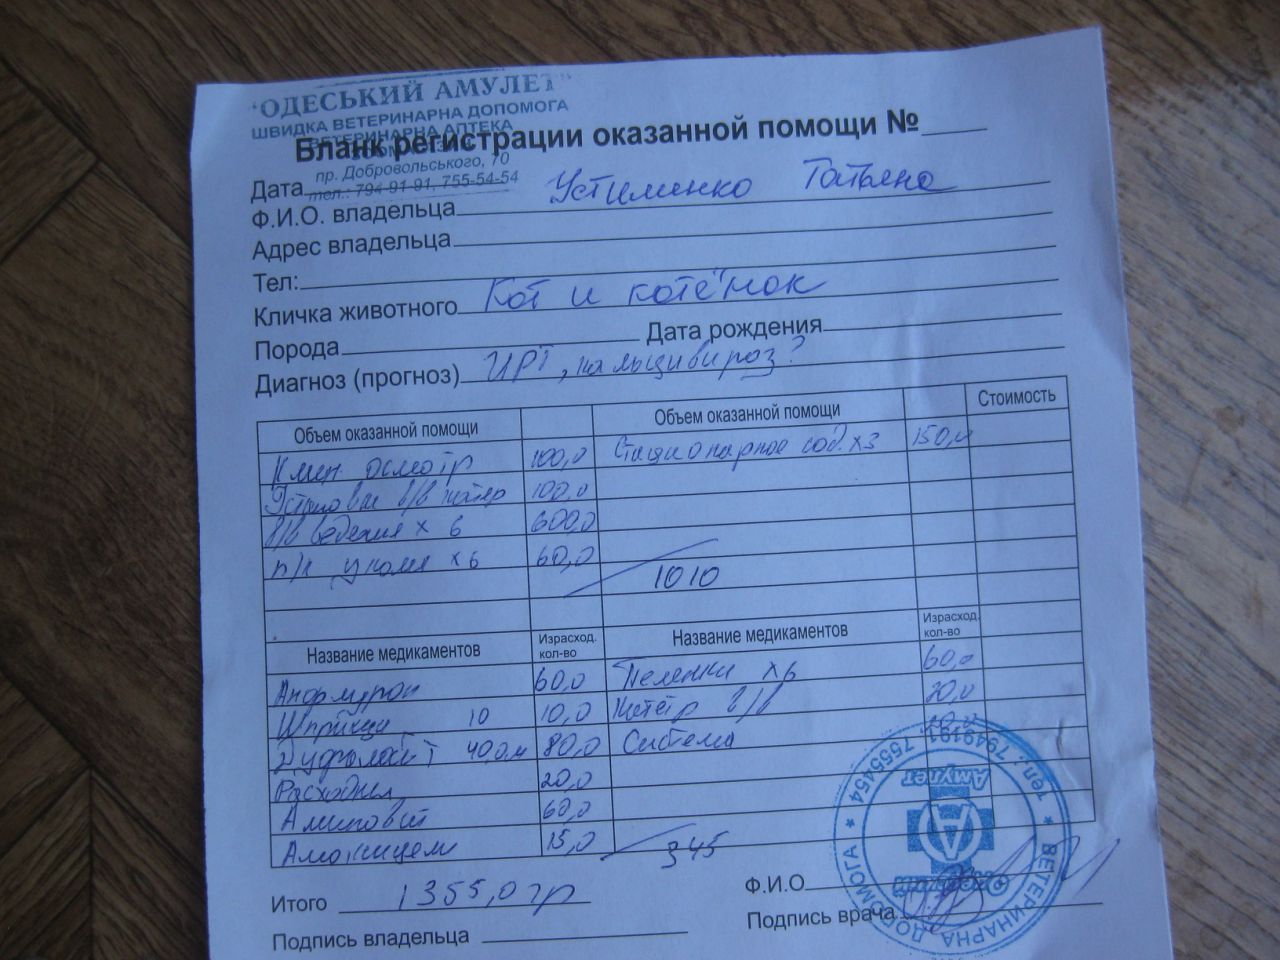 "ОДЕСЬКИЙ АМУЛЕТ"
ШВИДКА ВЕТЕРИНАРНА ДОПОМОГА
ВЕТЕРИНАРНА АПТЕКА
Бланк регистрации оказанной помощи №
пр. Добровольського, 70
тел.: 794-91-91, 755-54-54
Дата
Ф.И.О. владельца Устименко Татьяна
Адрес владельца
Тел:
Кличка животного Кот и котёнок
Порода Дата рождения
Диагноз (прогноз) ИРТ, кальцивироз?
Объем оказанной помощи Объем оказанной помощи Стоимость
Клин осмотр 100,0 Стационарное сод. х3 150,0
в/в катетер 100,0
В/В ведения х 6 600,0
п/к уколы х6 60,0
1010
Название медикаментов Израсход. кол-во Название медикаментов Израсход. кол-во
60,0 Пеленки х6 60,0
Шприцы 10 10,0 Катетер в/в 20,0
Дуфалайт 40,0м 80,0 Система
Расходы 20,0
60,0
15,0 345
Итого 1355,0гр Ф.И.О
Подпись владельца Подпись врача
ВЕТЕРИНАРНА ДОПОМОГА * Тел. 7949191, 7555454 *
Амулет